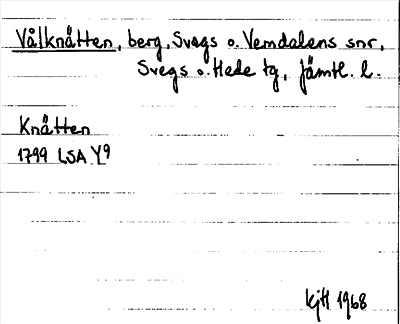 Vålknätten, berg, Svegs o. Vemdalens snr,
Svegs o. Hede tg, Jämtl. l.
Knätten
1799 LSA Y9
kjH 1968